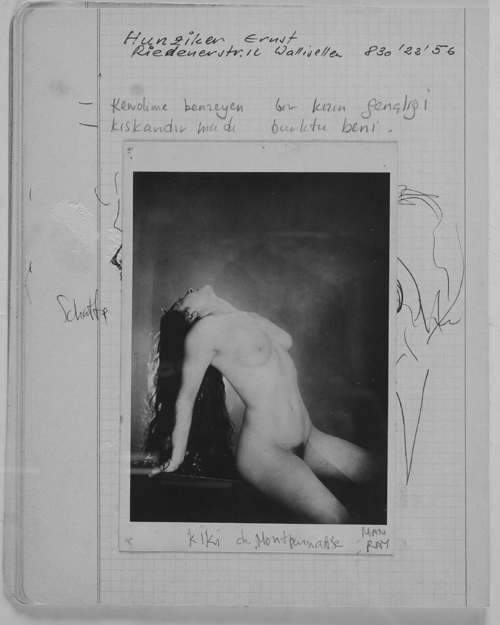 Hunziker Ernst
Riedenerstr. 12 Wallisellen 830'22'56
Kendime benzeyen bir kızın gençliği
kıskandırmadı burktu beni.
Schatte
Kiki de Montparnasse
MAN
RAY